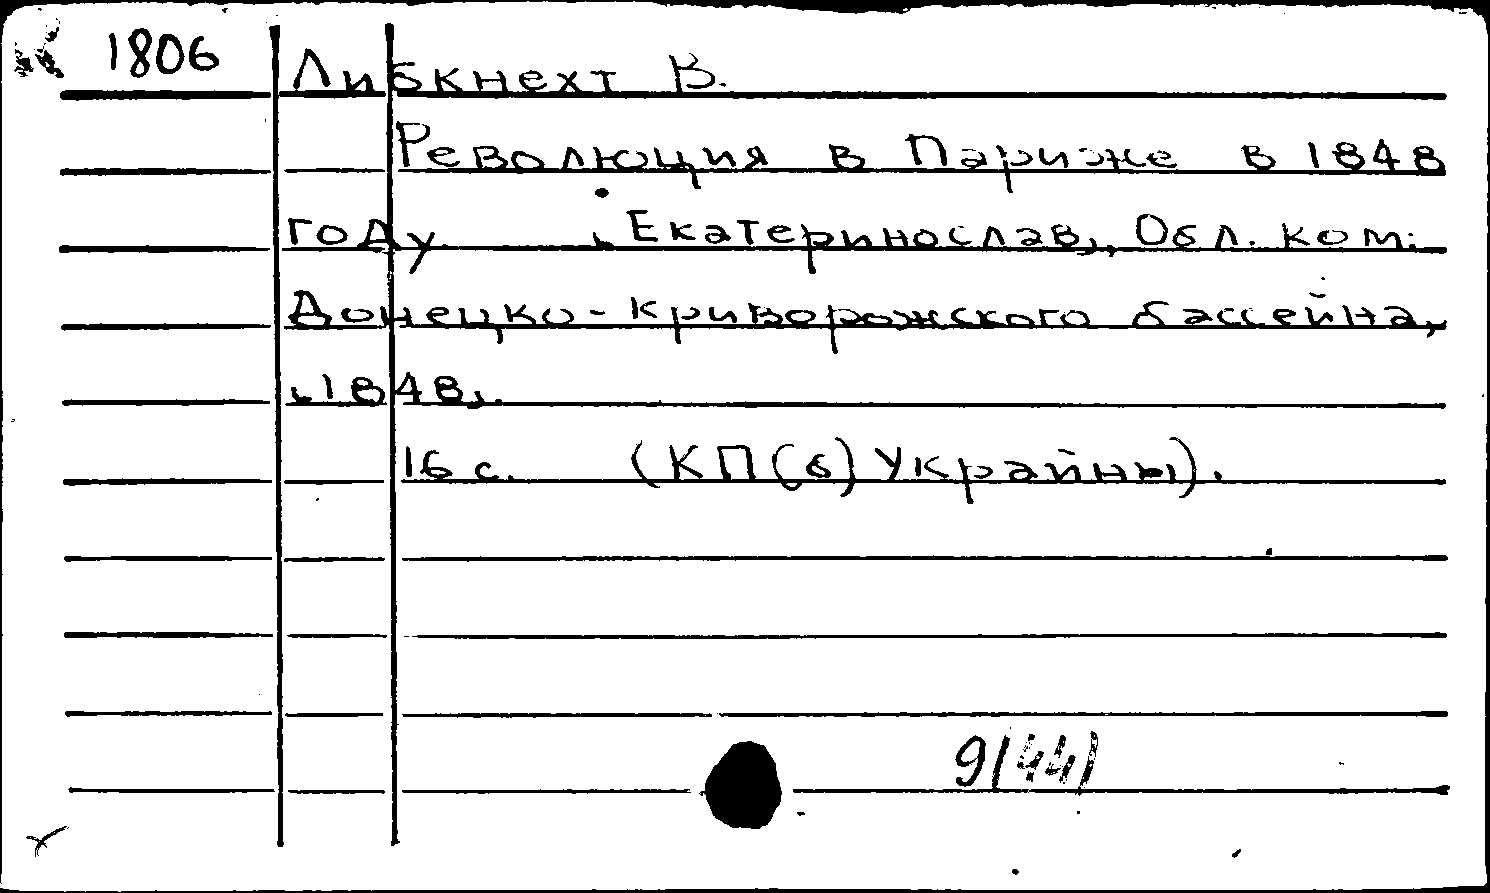 1806 Либкнехт В.
Революция в Париже в 1848
году. Екатеринослав, Обл. ком.
Донецко-Криворожского бассейна,
1848.
16 с. (КП(б) Украйны).
9(44)